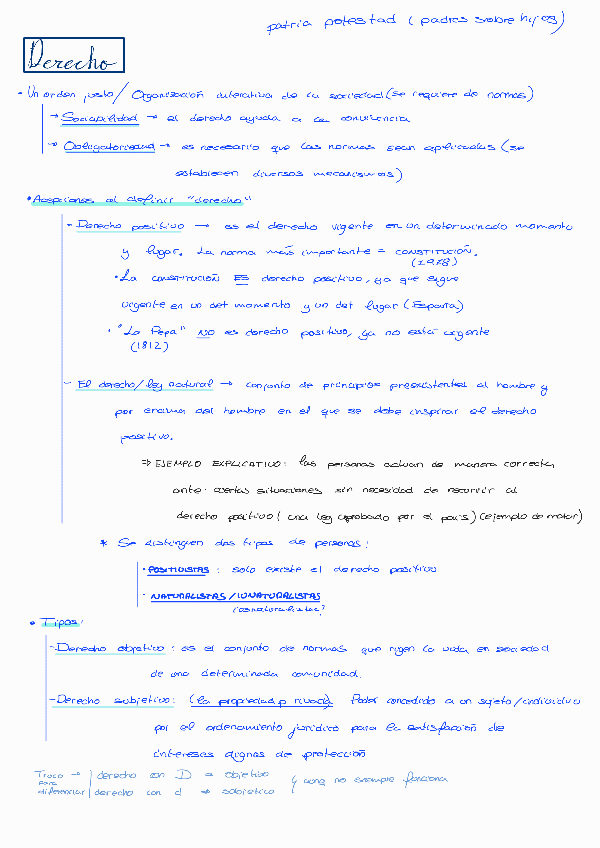 patria potestad (padres sobre hijos)
Derecho
• Un orden justo / Organización de la sociedad (se requiere de normas)
→ Sociabilidad → el derecho ayuda a la convivencia
→ Obligatoriedad → es necesario que las normas sean aplicadas (se
establecen diversos mecanismos)
• Acepciones al definir "derecho"
- Derecho positivo → es el derecho vigente en un determinado momento
y lugar. La norma más importante = CONSTITUCIÓN.
(1978)
• La CONSTITUCIÓN ES derecho positivo, ya que sigue
vigente en un det momento y un det lugar (España)
• "La Pepa" NO es derecho positivo, ya no está vigente
(1812)
- El derecho/ley natural → conjunto de principios preexistentes al hombre y
por encima del hombre en el que se debe inspirar el derecho
positivo.
⇒ EJEMPLO EXPLICATIVO: las personas actuan de manera correcta
ante ciertas situaciones sin necesidad de recurrir al
derecho positivo (una ley aprobada por el país) (ejemplo de matar)
* Se distinguen dos tipos de personas:
• POSITIVISTAS: solo existe el derecho positivo
• NATURALISTAS/IUNATURALISTAS
• Tipos:
- Derecho objetivo: es el conjunto de normas que rigen la vida en sociedad
de una determinada comunidad.
- Derecho subjetivo: (la propiedad privada) Poder concedido a un sujeto/individuo
por el ordenamiento jurídico para la satisfacción de
intereses dignos de protección
Truco → derecho con D → objetivo
para
diferenciar derecho con d → subjetivo
y aunq no siempre funciona